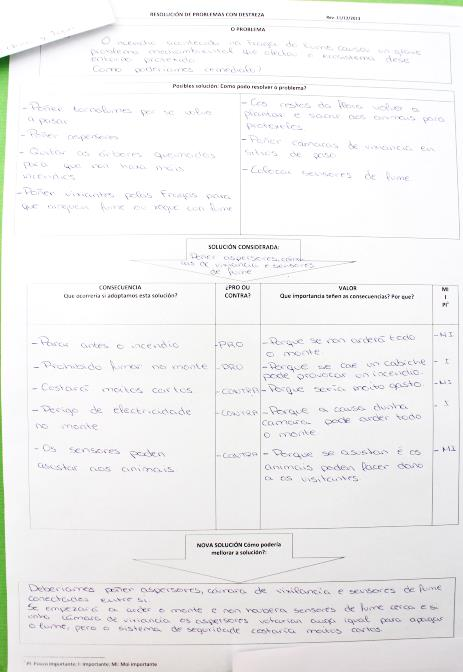 RESOLUCIÓN DE PROBLEMAS CON DESTREZA
Rev. 11/12/2013
O PROBLEMA
O incendio acontecido na Fraga do Eume causou un grave
problema medioambiental que afectou o ecosistema dese
entorno protexido
Como poderiamos remedialo?
Posibles solución: Como podo resolver o problema?
- Poñer por se volve
a pasar
- Poñer aspersores
- Quitar as árbores queimadas
para que non haxa mais
incendios
- Poñer vixiantes polas Fragas para
que ninguén fume ou xogue con lume
- Cos restos da flora volver a
plantar e sacar aos animais para
protexelos
- Poñer cámaras de vixiancia en
sitios de paso
- Colocar sensores de fume
SOLUCIÓN CONSIDERADA:
Poñer aspersores, cámaras
de vixiancia e sensores
de fume
CONSECUENCIA
Que ocorrería si adoptamos esta solución?
¿PRO OU
CONTRA?
VALOR
Que importancia teñen as consecuencias? Por que?
MI
I
PI
- Parar antes o incendio
- PRO
- Porque se non arderá todo
o monte
- MI
- Prohibido fumar no monte
- PRO
- Porque se cae un cabiche
pode provocar un incendio.
- I
- Costará moitos cartos
- CONTRA
- Porque sería moito gasto.
- MI
- Perigo de electricidade
no monte
- CONTRA
- Porque a causa dunha
cámara pode arder todo
o monte
- I
- Os sensores poden
asustar aos animais
- CONTRA
- Porque se asustan é os
animais poden facer dano
a os visitantes
- MI
NOVA SOLUCIÓN Cómo podería
mellorar a solución?:
Deberiamos poñer aspersores, cámara de vixilancia e sensores de fume
conectados entre si.
Se empezará a arder o monte e non houbera sensores de fume cerca e si
unha cámara de vixiancia os aspersores votarían auga igual para apagar
o lume, pero o sistema de seguridade costaría moitos cartos.
PI: Pouco importante; I: Importante; MI: Moi importante